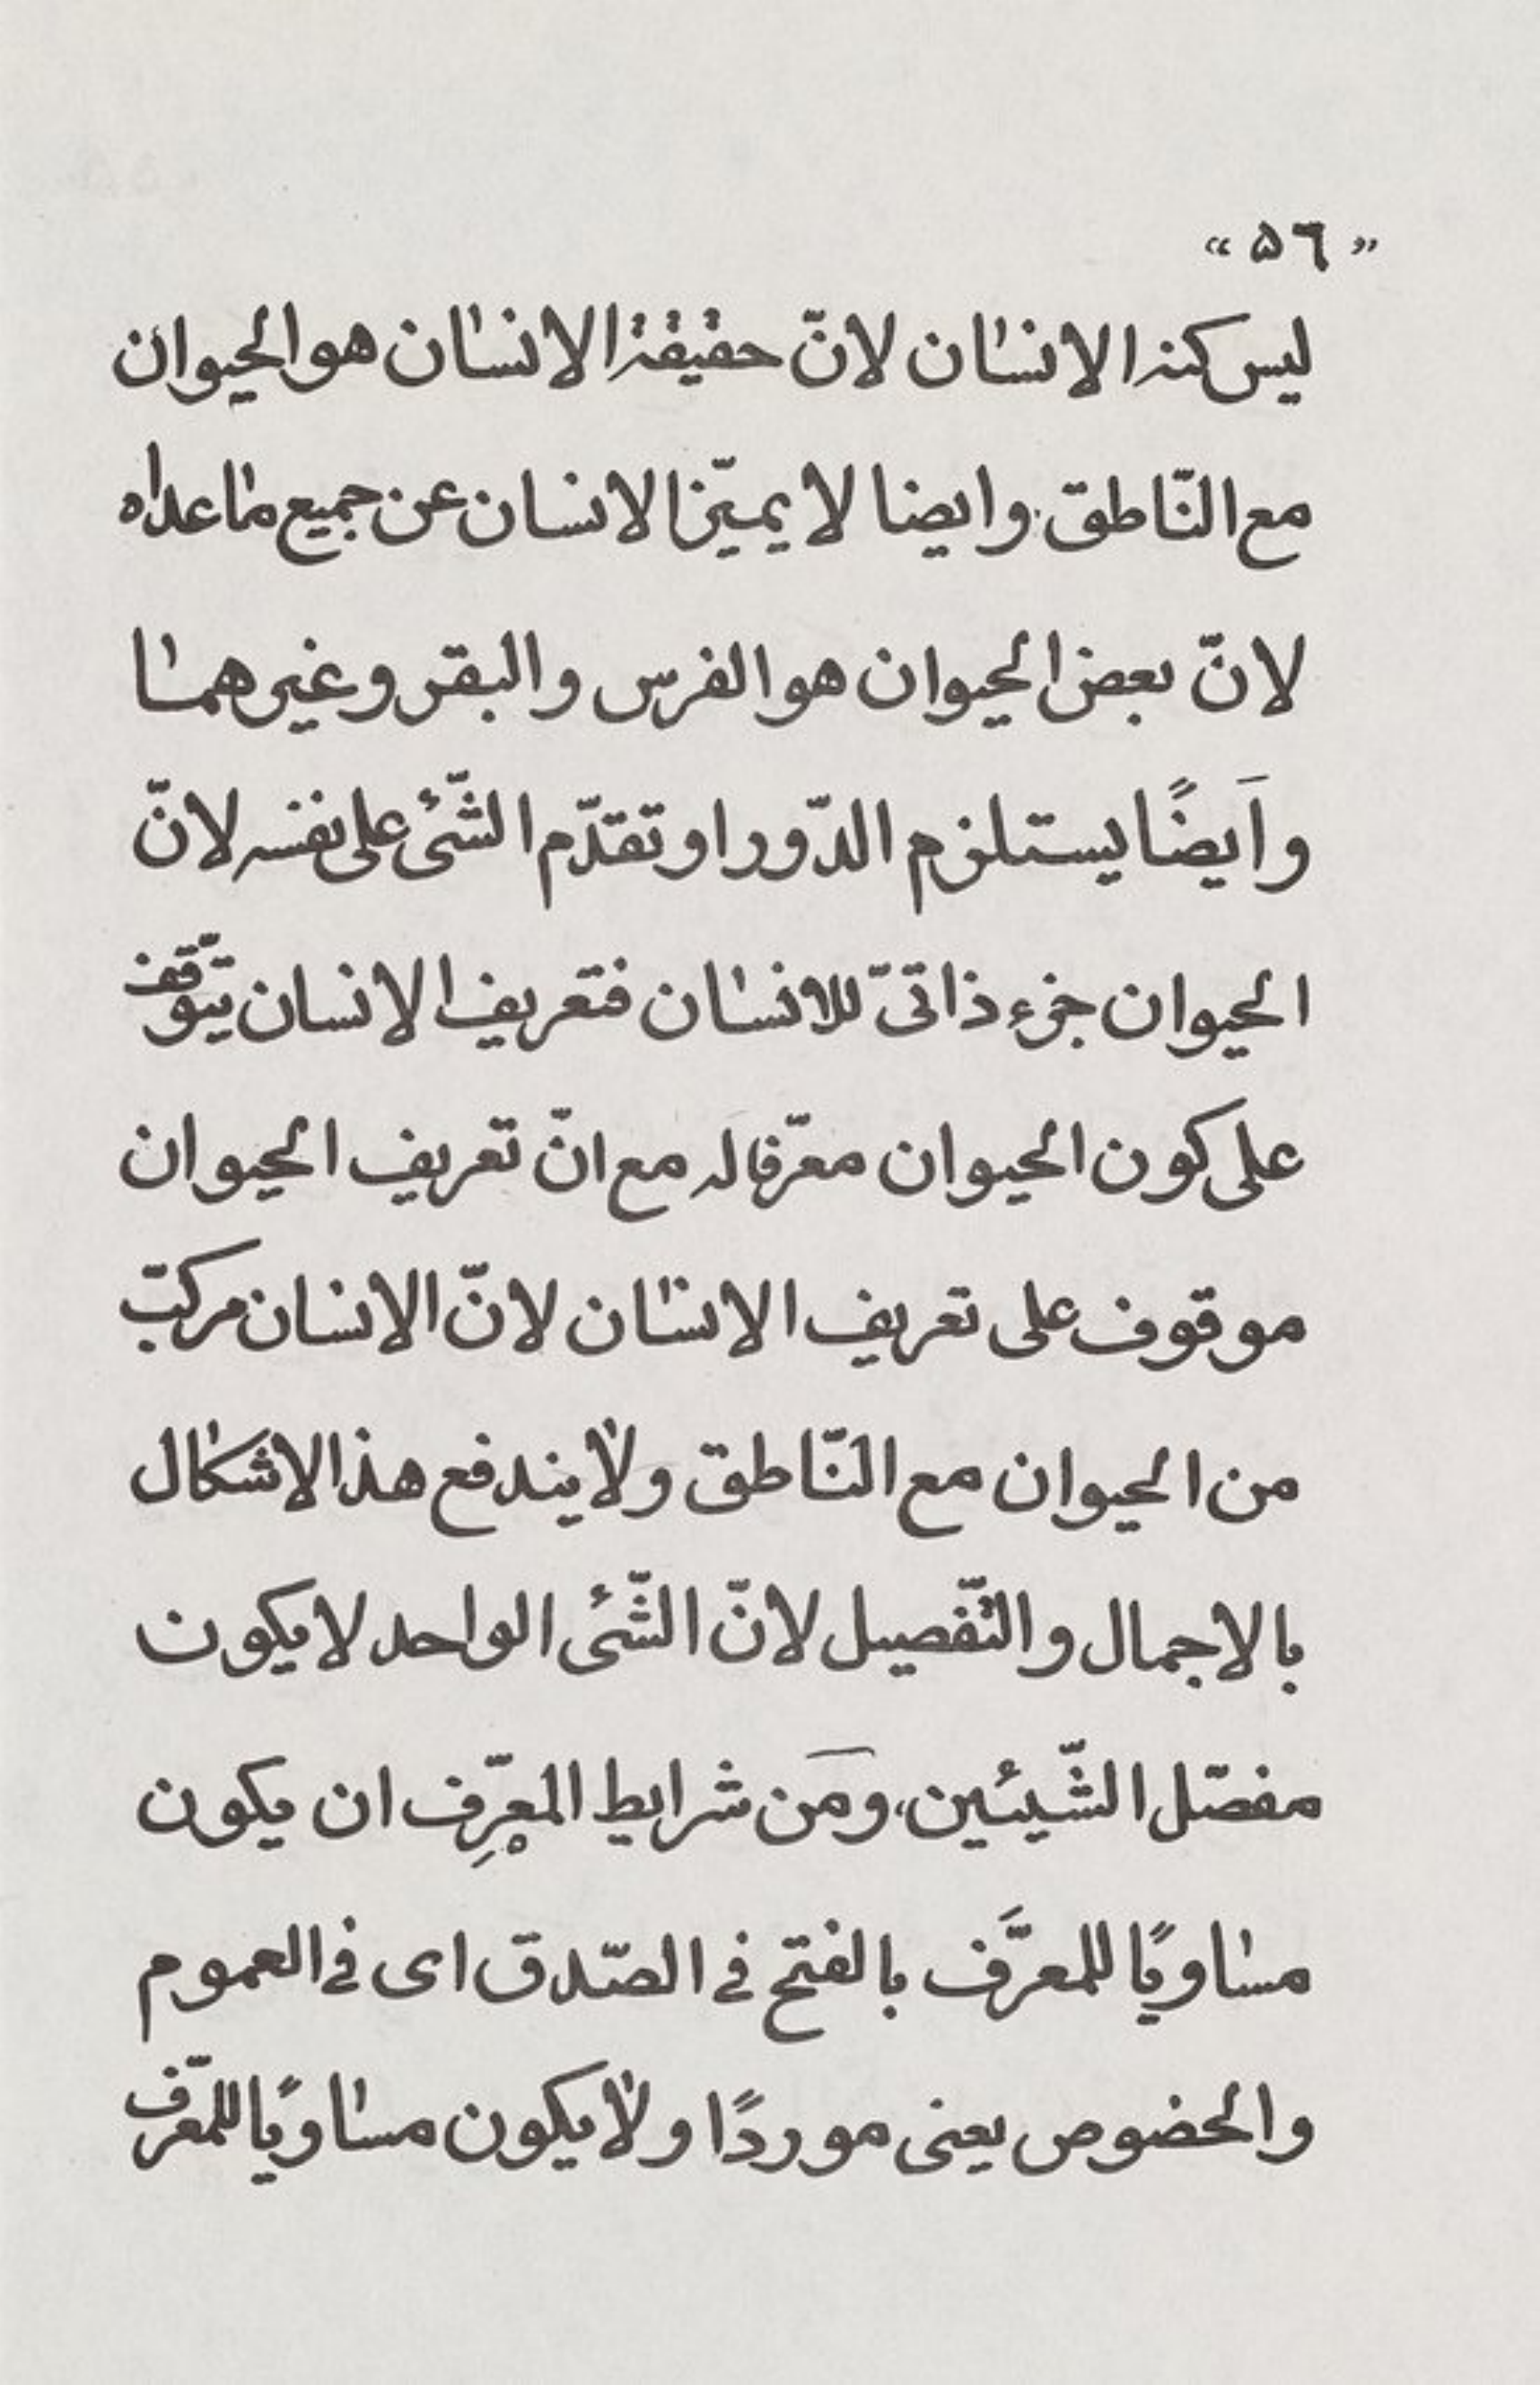 « ۵٦ »
ليس كنه الانسان لانّ حقيقة الانسان هو الحيوان
مع النّاطق وايضا لا يميّز الانسان عن جميع ما عداه
لانّ بعض الحيوان هو الفرس والبقر وغيرهما
واَيضًا يستلزم الدّور او تقدّم الشّئ على نفسه لانّ
الحيوان جزء ذاتىّ للانسان فتعريف الانسان يتوّقف
على كون الحيوان معرّفا له مع انّ تعريف الحيوان
موقوف على تعريف الانسان لانّ الانسان مركبّ
من الحيوان مع النّاطق ولا يندفع هذا الاشكال
بالاجمال والتّفصيل لانّ الشّئ الواحد لا يكون
مفصّل الشّيئين، ومَن شرايط المعرِّف ان يكون
مساويًا للمعرَّف بالفتح فى الصّدق اى فى العموم
والخضوص يعنى موردًا ولا يكون مساويًا للمعّرف